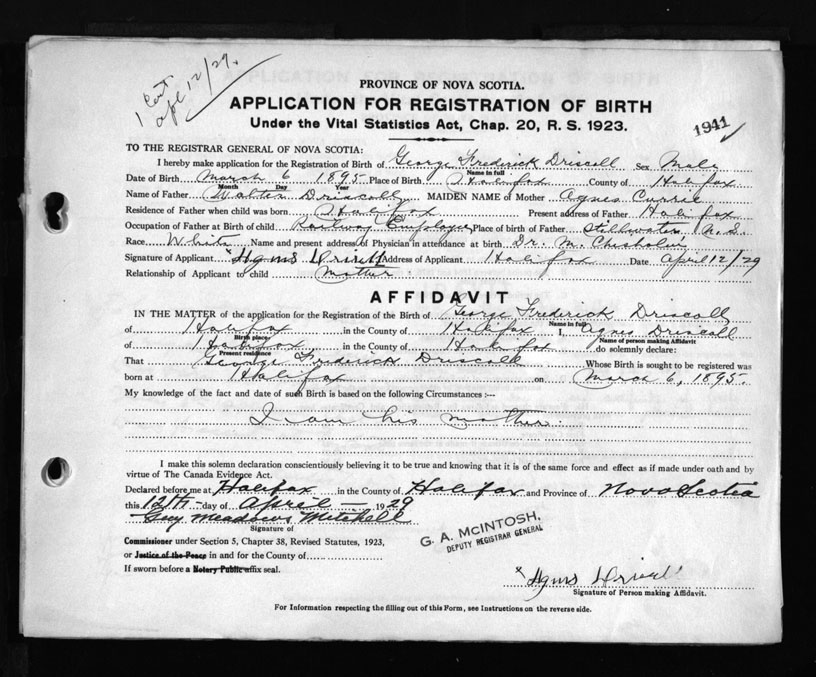 1 Cert.
Apl 12/29.
PROVINCE OF NOVA SCOTIA.
APPLICATION FOR REGISTRATION OF BIRTH
Under the Vital Statistics Act, Chap. 20, R. S. 1923.
1941
TO THE REGISTRAR GENERAL OF NOVA SCOTIA:
I hereby make application for the Registration of Birth of George Frederick Driscoll Sex Male
Name in full
Date of Birth March 6 1895 Place of Birth Halifax County of Halifax
Month Day Year
Name of Father Walter Driscoll MAIDEN NAME of Mother Agnes Currie
Residence of Father when child was born Halifax Present address of Father Halifax
Occupation of Father at Birth of child Railway Employee Place of birth of Father Stillwater N.S.
Race White Name and present address of Physician in attendance at birth Dr. M. Chisholm
Signature of Applicant Agnes Address of Applicant Halifax Date April 12/29
Relationship of Applicant to child mother
AFFIDAVIT
IN THE MATTER of the application for the Registration of the Birth of George Frederick Driscoll
Name in full
of Halifax in the County of Halifax I, Agnes Driscoll
Birth place Name of person making Affidavit
of Halifax in the County of Halifax do solemnly declare:
Present residence
That George Frederick Driscoll Whose Birth is sought to be registered was
born at Halifax on March 6, 1895.
My knowledge of the fact and date of such Birth is based on the following Circumstances :—
I am his mother.
I make this solemn declaration conscientiously believing it to be true and knowing that it is of the same force and effect as if made under oath and by
virtue of The Canada Evidence Act.
Declared before me at Halifax in the County of Halifax and Province of Nova Scotia
this 12th day of April 1929
Guy Meadows Mitchell
Signature of
Commissioner under Section 5, Chapter 38, Revised Statutes, 1923,
or Justice of the Peace in and for the County of
If sworn before a Notary Public affix seal.
G. A. MCINTOSH,
DEPUTY REGISTRAR GENERAL
x Agnes
Signature of Person making Affidavit.
For Information respecting the filling out of this Form, see Instructions on the reverse side.